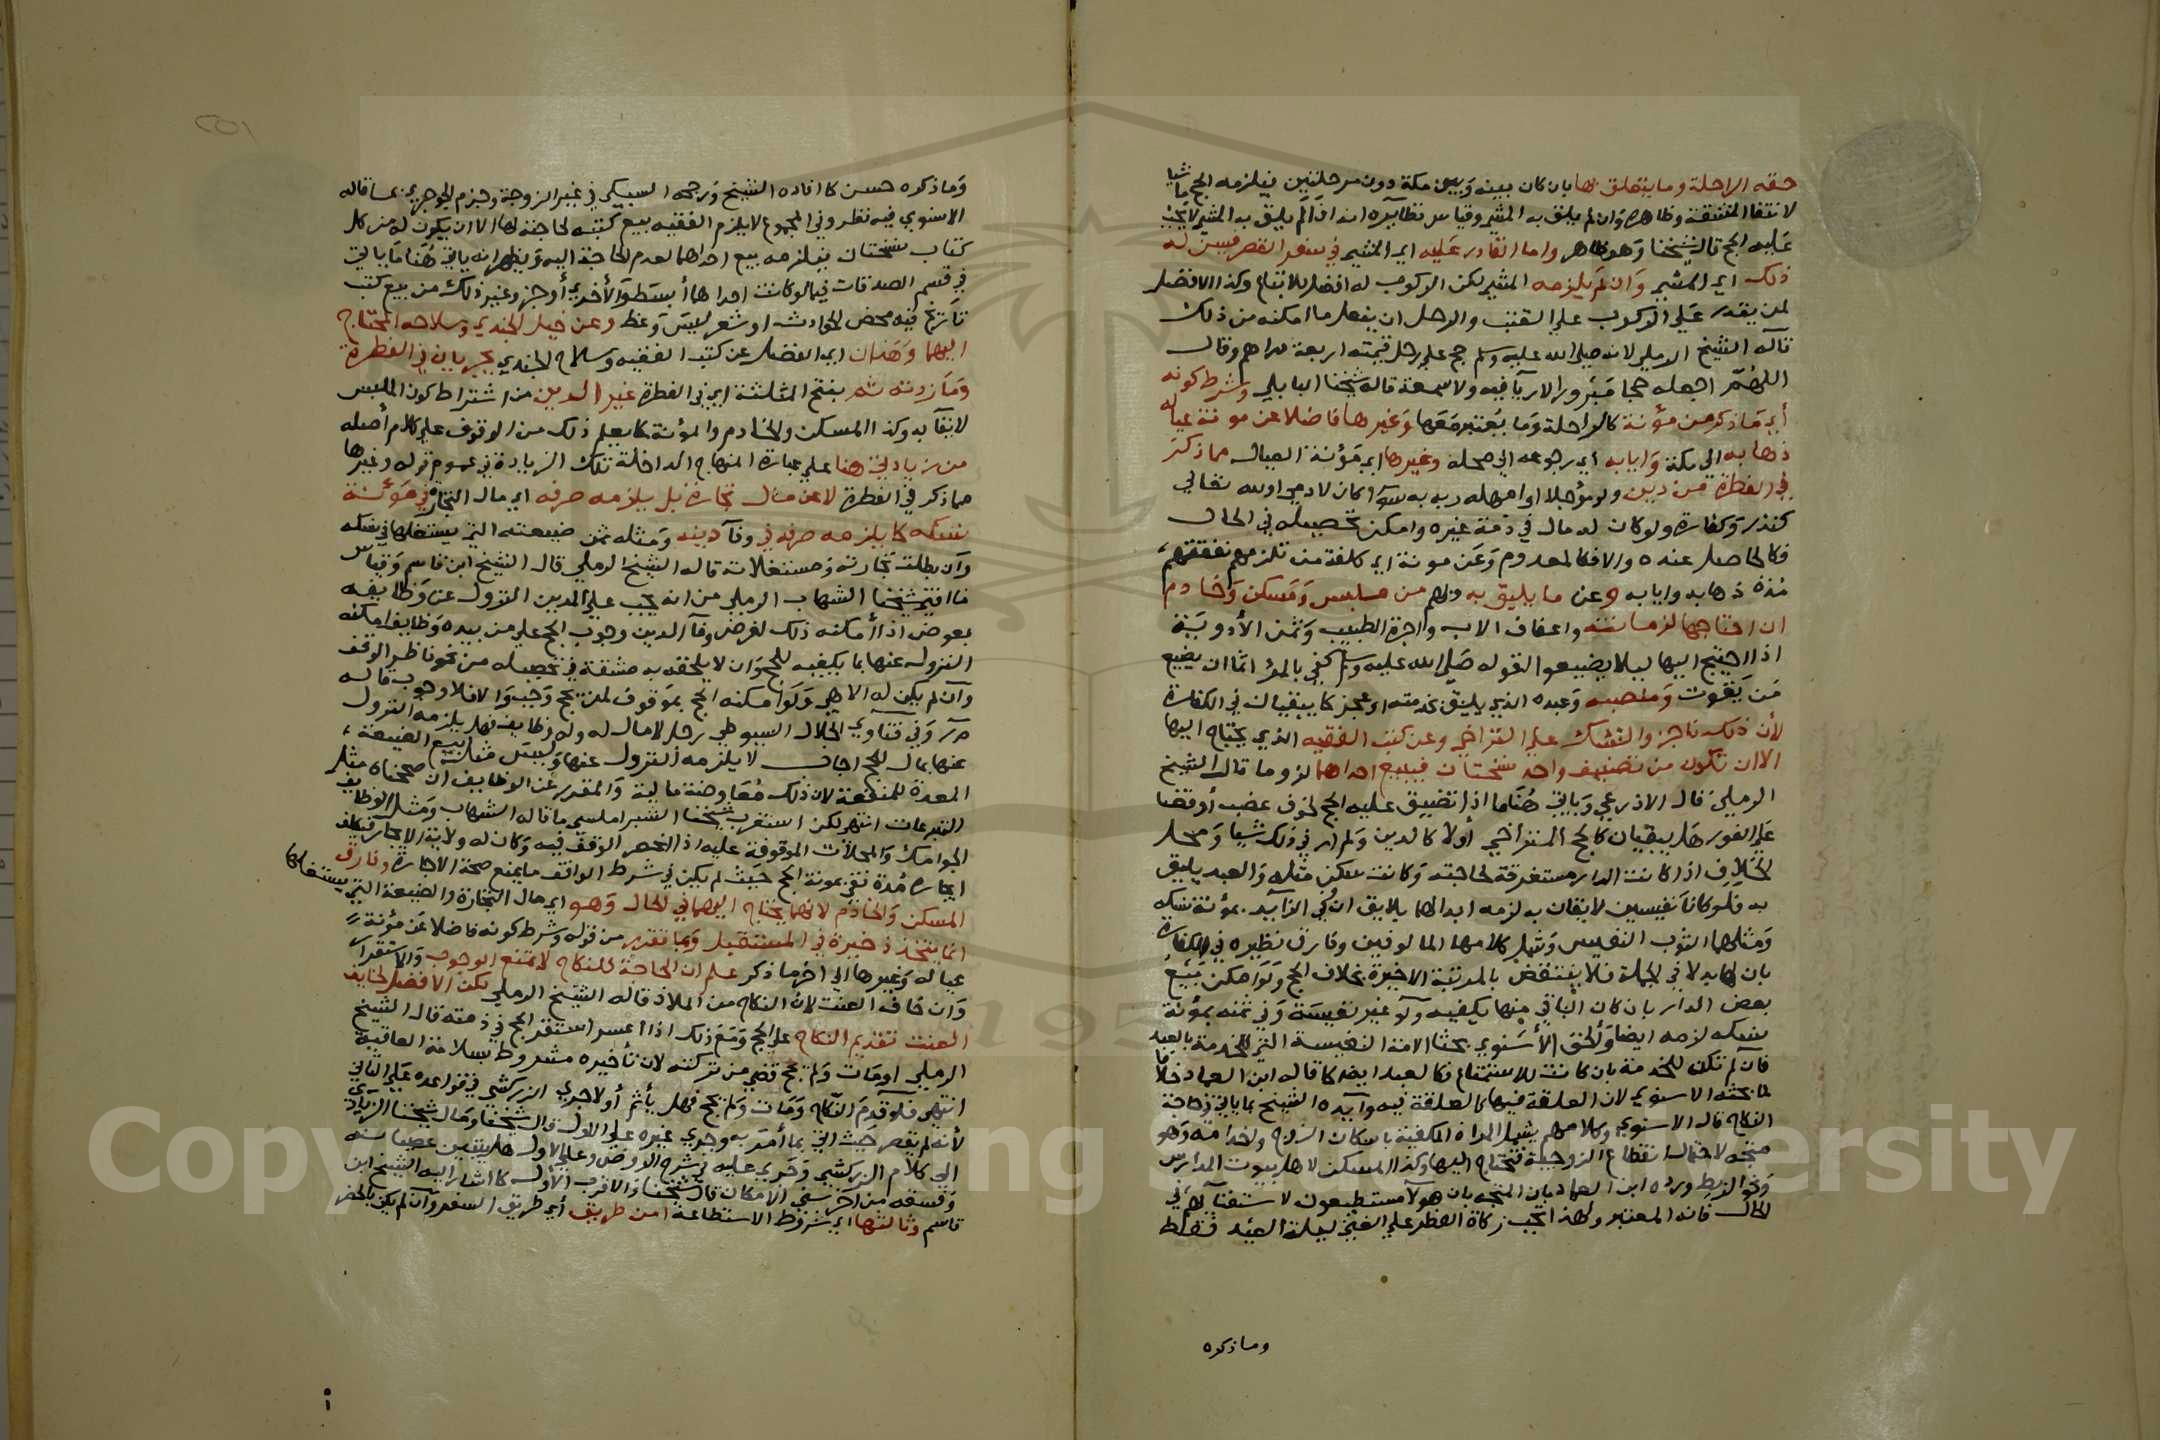 حقه الراحلة وما يتعلق بها بان كان بينه وبين مكة دون مرحلتين فيلزمه الحج ماشيا
لانتفا المشقة وظاهره وان لم يلق به المشي وقياس نظايره انه اذا لم يلق به المشي لا يجب
عليه الحج قال شيخنا وهو ظاهر واما القادر عليه اي المشي في سفر القصر فيسن له
ذلك اي المشي وان لم يلزمه المشي لكن الركوب له افضل للاتباع وكذا الافضل
لمن يقدر علي الركوب علي القتب والرحل ان يفعل ما امكنه من ذلك
قاله الشيخ الرملي لانه صلي الله عليه وسلم حج علي رحل قيمته اربعة دراهم وقال
اللهم اجعله حجا مبرورا لا ريآ فيه ولا سمعة قاله شيخنا البابلي وشرط كونه
أي ما ذكر من مؤنة كالراحلة وما يعتبر معها وغيرها فاضلا عن مونة عياله
ذهابه الي مكة وايابه أي رجوعه الي محله وغيرها اي مؤنة العيال مما ذكر
في الفطرة من دين ولو مؤجلا او امهله ربه به سوآ اكان لادمي او لله تعالي
كنذر وكفارة ولو كان له مال في ذمة غيره وامكن تحصيله في الحال
فكالحاصل عنده والا فكالمعدوم وعن مونة اي كلفة من تلزمهم نفقتهم
مدة ذهابه وايابه وعن ما يليق به وبهم من ملبس ومسكن وخادم
ان احتاجها لزمانته واعفاف الاب واجرة الطبيب وثمن الأدوية
اذا احتيج اليها ليلا يضيعوا لقوله صلي الله عليه وسلم كفي بالمرء اثما ان يضيع
من يقوت ومنصبه وعبده الذي يليق بخدمته او عجز كما يبقيان في الكفارة
لأن ذلك ناجز والنسك علي التراخي وعن كتب الفقيه الذي يحتاج اليها
الا ان تكون من تصنيف واحد نسختان فيبيع احداهما لزوما قال الشيخ
الرملي قال الاذرعي وياتي هنا ما اذا تضيق عليه الحج لخوف عضب أو قضا
علي الفور هل يبقيان كالحج المتراخي أولا كالدين ولم ار في ذلك شيا ومحل
الخلاف اذا كانت الدار مستغرقة لحاجته وكانت سكن مثله والعبد يليق
به فلو كانا نفيسين لا يقان به لزمه ابدالهما بلايق ان كفي الزآيد بمؤنة نسكه
ومثلهما الثوب النفيس وشمل كلامهما المالوفين وفارق نظيره في الكفارة
بان لها بدلا في الجملة فلا ينتقض بالمرتبة الاخيرة بخلاف الحج ولو امكن بيع
بعض الدار بان كان الباقي منها يكفيه ولو غير نفيسة وفي ثمنه بمؤنة
نسكه لزمه ايضا وألحق الأسنوي بحثا الامة النفيسة التي للخدمة بالعبد
فان لم تكن للخدمة بان كانت للاستمتاع فكالعبد ايضا كما قاله ابن العماد خلافا
لما بحثه الاسنوي لان العلقة فيها كالعلقة فيه وايده الشيخ بما ياتي في حاجة
النكاح قال الاسنوي وكلامهم يشمل المراة المكفية باسكان الزوج واخدامه وهو
متجه لاحتمال انقطاع الزوجية فتحتاج اليها وكذا المسكن لاهل بيوت المدارس
ونحو الربط ورده ابن العماد بان المتجه بان هولآ مستطيعون لاستغنايهم في
الحال فانه المعتبر ولهذا تجب زكاة الفطر علي الغني ليلة العيد فقط
وما ذكره
وما ذكره حسن كما افاده الشيخ ورجحه السبكي في غير الزوجة وجزم الجوجري بما قاله
الاسنوي فيه نظر وفي المجموع لا يلزم الفقيه بيع كتبه لحاجته لها الا ان يكون له من كل
كتاب نسختان فيلزمه بيع احداهما لعدم الحاجة اليه ويظهر انه ياتي هنا ما ياتي
في قسم الصدقات فيما لو كانت احداهما أبسط والأخري أوجز وغير ذلك من بيع كتب
تاريخ فيه محض الحوادث او شعر ليس وعظ وعن خيل الجندي وسلاحه المحتاج
اليهما وهذان اي الفضل عن كتب الفقيه وسلاح الجندي يجريان في الفطرة
وما زدته ثم بفتح المثلثة اي في الفطرة غير الدين من اشتراط كون الملبس
لايقآ به وكذا المسكن والخادم والمؤنة كما يعلم ذلك من الوقوف علي كلام أصله
من زيادتي هنا علي عبارة المنهاج الداخلة تلك الزيادة في عموم قوله وغيرها
مما ذكر في الفطرة لا عن مال تجارة بل يلزمه صرفه اي مال التجارة في مؤنة
نسكه كما يلزمه صرفه في وفآ دينه ومثله ثمن ضيعته التي يستغلها في نسكه
وان بطلت تجارته ومستغلاته قاله الشيخ الرملي قال الشيخ ابن قاسم وقياس
ما افتي شيخنا الشهاب الرملي من انه يجب علي المدين النزول عن وظايفه
بعوض اذا أمكنه ذلك لغرض وفآ الدين وجوب الحج علي من بيده وظايف امكنه
النزول عنها بما يكفيه للحج وان لا يلحقه به مشقة في تحصيله من نحو ناظر الوقف
وان لم يكن له الا هي ولو امكنه الحج بموقوف لمن يحج وجب والا فلا وجوب قاله
م ر وفي فتاوي الجلال السيوطي رجل لا مال له وله وظايف فهل يلزمه النزول
عنها بمال للحج اجاب لا يلزمه النزول عنها وليس مثل بيع الضيعة
المعدة للمنفعة لان ذلك معاوضة مالية والمقدر عن الوظايف ان صححناه مثل
التبرعات انتهي لكن استغرب شيخنا الشبراملسي ما قاله الشهاب ومثل الوظايف
الجوامك والمحلات الموقوفة عليه اذا انحصر الوقف فيه وكان له ولاية الايجار فيكلف
ايجاره مدة تفي بمونة الحج حيث لم يكن في شرط الواقف ما يمنع صحة الاجارة وفارق
المسكن والخادم لانهما يحتاج اليهما في الحال وهو اي مال التجارة والضيعة التي يستغلها
انما يتخذ ذخيرة في المستقبل وبما تقرر من قوله وشرط كونه فاضلا عن مؤنة
عياله وغيرها الي اخر ما ذكر علم ان الحاجة للنكاح لا تمنع الوجوب والاستقرار
وان خاف العنت لان النكاح من الملاذ قاله الشيخ الرملي لكن الافضل لخايف
العنت تقديم النكاح علي الحج ومع ذلك اذا اعسر استقر الحج في ذمته قال الشيخ
الرملي او مات ولم يحج قضي من تركته لان تأخيره مشروط بسلامة العاقبة
انتهي فلو قدم النكاح ومات ولم يحج فهل يأثم أولا جري الزركشي في قواعده علي الثاني
لأنه لم يقصر حيث اتي بما أمر به وجري غيره علي الاول قال شيخنا ومال شيخنا الزيادي
الي كلام الزركشي وجري عليه في شرح الروض وعلي الاول هل يتبين عصيانه
وفسقه من اخر سني الامكان قال شيخنا والاقرب الأول كما اشار اليه الشيخ ابن
قاسم وثالثها اي شروط الاستطاعة امن طريق أي طريق السفر وان لم يكن بالحضر